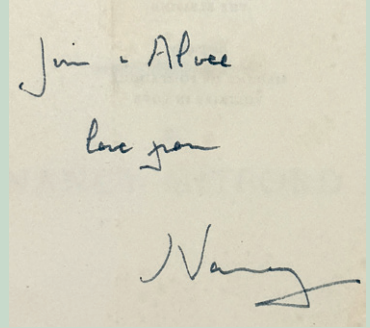 Jim & Alvee
love from
Nancy